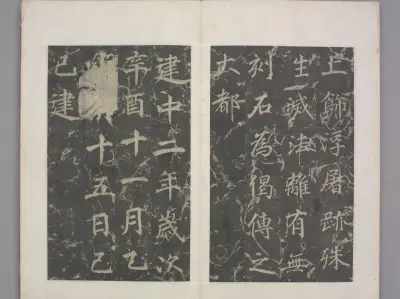 上飾浮屠跡殊
生滅法離有無
刻石為偈傳之
大都
建中二年歲次
辛酉十一月乙
十五日己
巳建